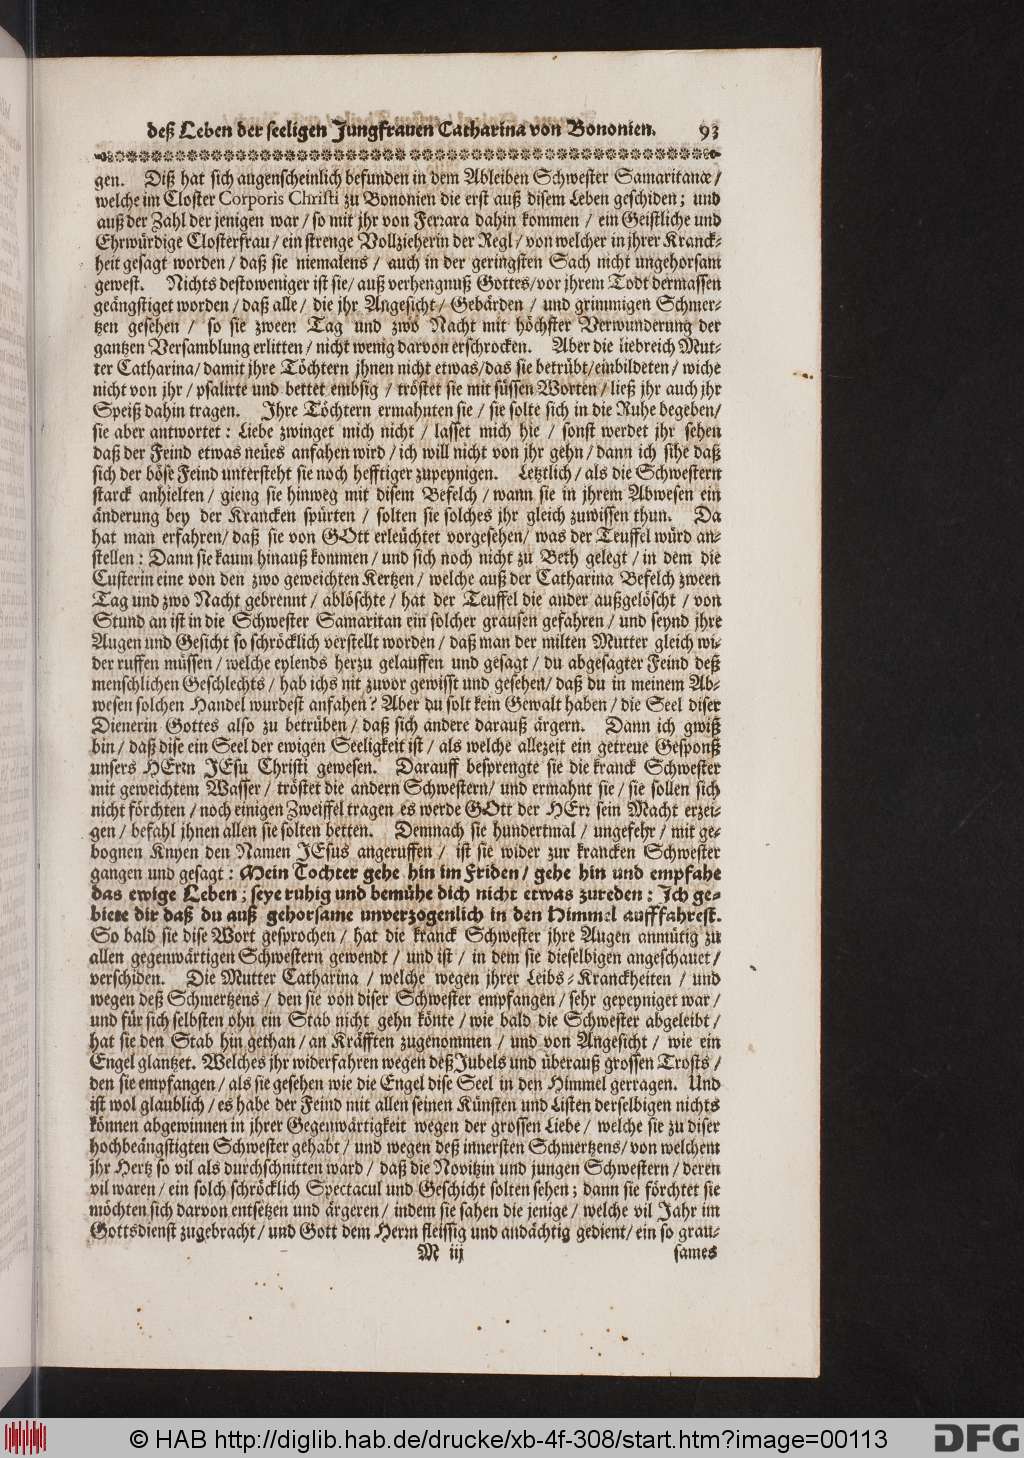 deß Leben der seeligen Jungfrauen Catharina von Bononien. 93
gen. Diß hat sich augenscheinlich befunden in dem Ableiben Schwester Samaritanæ /
welche im Closter Corporis Christi zu Bononien die erst auß disem Leben geschiden; und
auß der Zahl der jenigen war / so mit jhr von Ferrara dahin kommen / ein Geistliche und
Ehrwürdige Closterfrau / ein strenge Vollzieherin der Regl / von welcher in jhrer Kranck-
heit gesagt worden / daß sie niemalens / auch in der geringsten Sach nicht ungehorsam
gewest. Nichts destoweniger ist sie / auß verhengnuß Gottes / vor jhrem Todt dermassen
geängstiget worden / daß alle / die jhr Angesicht / Gebärden / und grimmigen Schmer-
tzen gesehen / so sie zween Tag und zwo Nacht mit höchster Verwunderung der
gantzen Versamblung erlitten / nicht wenig darvon erschrocken. Aber die liebreich Mut-
ter Catharina / damit jhre Töchtern jhnen nicht etwas / das sie betrübt / einbildeten / wiche
nicht von jhr / psalirte und bettet embsig / tröstet sie mit süssen Worten / ließ jhr auch jhr
Speiß dahin tragen. Ihre Töchtern ermahnten sie / sie solte sich in die Ruhe begeben /
sie aber antwortet : Liebe zwinget mich nicht / lasset mich hie / sonst werdet jhr sehen
daß der Feind etwas neües anfahen wird / ich will nicht von jhr gehn / dann ich sihe daß
sich der böse Feind untersteht sie noch hefftiger zupeynigen. Letztlich / als die Schwestern
starck anhielten / gieng sie hinweg mit disem Befelch / wann sie in jhrem Abwesen ein
änderung bey der Krancken spürten / solten sie solches jhr gleich zuwissen thun. Da
hat man erfahren / daß sie von GOtt erleüchtet vorgesehen / was der Teuffel würd an-
stellen : Dann sie kaum hinauß kommen / und sich noch nicht zu Beth gelegt / in dem die
Custerin eine von den zwo geweichten Kertzen / welche auß der Catharina Befelch zween
Tag und zwo Nacht gebrennt / ablöschte / hat der Teuffel die ander außgelöscht / von
Stund an ist in die Schwester Samaritan ein solcher grausen gefahren / und seynd jhre
Augen und Gesicht so schröcklich verstellt worden / daß man der milten Mutter gleich wi-
der ruffen müssen / welche eylends herzu gelauffen und gesagt / du abgesagter Feind deß
menschlichen Geschlechts / hab ichs nit zuvor gewisst und gesehen / daß du in meinem Ab-
wesen solchen Handel wurdest anfahen ? Aber du solt kein Gewalt haben / die Seel diser
Dienerin Gottes also zu betrüben / daß sich andere darauß ärgern. Dann ich gwiß
bin / daß dise ein Seel der ewigen Seeligkeit ist / als welche allezeit ein getreue Gesponß
unsers HErrn JEsu Christi gewesen. Darauff besprengte sie die kranck Schwester
mit geweichtem Wasser / tröstet die andern Schwestern / und ermahnt sie / sie sollen sich
nicht förchten / noch einigen Zweiffel tragen es werde GOtt der HErr sein Macht erzei-
gen / befahl jhnen allen sie solten betten. Demnach sie hundertmal / ungefehr / mit ge-
bognen Knyen den Namen JEsus angeruffen / ist sie wider zur krancken Schwester
gangen und gesagt : Mein Tochter gehe hin im Friden / gehe hin und empfahe
das ewige Leben ; seye ruhig und bemühe dich nicht etwas zureden : Ich ge-
biete dir daß du auß gehorsame unverzogenlich in den Himmel aufffahrest.
So bald sie dise Wort gesprochen / hat die kranck Schwester jhre Augen anmütig zu
allen gegenwärtigen Schwestern gewendt / und ist / in dem sie dieselbigen angeschauet /
verschiden. Die Mutter Catharina / welche wegen jhrer Leibs-Kranckheiten / und
wegen deß Schmertzens / den sie von diser Schwester empfangen / sehr gepeyniget war /
und für sich selbsten ohn ein Stab nicht gehn könte / wie bald die Schwester abgeleibt /
hat sie den Stab hin gethan / an Kräfften zugenommen / und von Angesicht / wie ein
Engel glantzet. Welches jhr widerfahren wegen deß Jubels und überauß grossen Trosts /
den sie empfangen / als sie gesehen wie die Engel dise Seel in den Himmel gerragen. Und
ist wol glaublich / es habe der Feind mit allen seinen Künsten und Listen derselbigen nichts
können abgewinnen in jhrer Gegenwärtigkeit wegen der grossen Liebe / welche sie zu diser
hochbeängstigten Schwester gehabt / und wegen deß innersten Schmertzens / von welchem
jhr Hertz so vil als durchschnitten ward / daß die Novitzin und jungen Schwestern / deren
vil waren / ein solch schröcklich Spectacul und Geschicht solten sehen ; dann sie förchtet sie
möchten sich darvon entsetzen und ärgeren / indem sie sahen die jenige / welche vil Jahr im
Gottsdienst zugebracht / und Gott dem Herrn fleissig und andächtig gedient / ein so grau-
M iij sames
© HAB http://diglib.hab.de/drucke/xb-4f-308/start.htm?image=00113
DFG